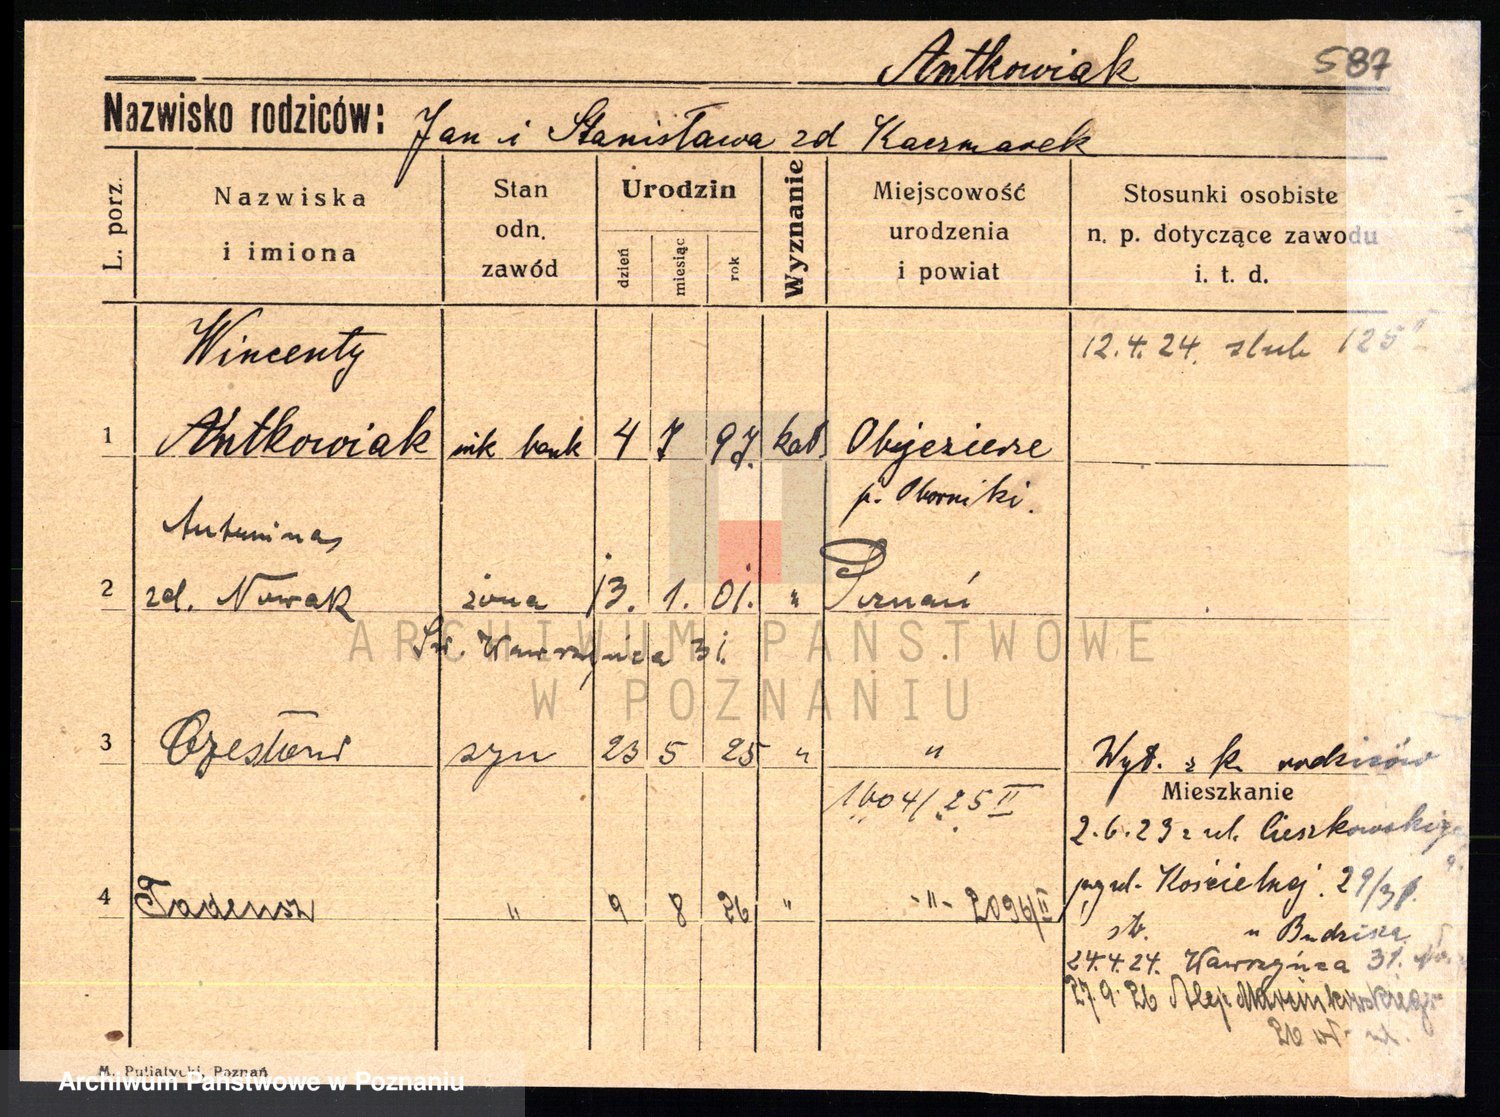 Antkowiak 587
Nazwisko rodziców: Jan i Stanisława zd Kaczmarek
L. porz.
Nazwiska i imiona
Stan odn. zawód
Urodzin
dzień miesiąc rok
Wyznanie
Miejscowość urodzenia i powiat
Stosunki osobiste n. p. dotyczące zawodu i. t. d.
Wincenty
12.4.24. slub 125 II
1 Antkowiak bank 4 7 97. kat Objezierze
p. Oborniki.
Antonina
2 zd. Nowak żona 13. 1. 01. " Poznań
Św. Wawrzyńca 31.
ARCHIWUM PAŃSTWOWE
W POZNANIU
3 Czesław syn 23 5 25 " "
1604/25 II
Wyt. z k. rodziców
Mieszkanie
2.6.23 z ul. Cieszkowskiego
przy ul. Kościelnej 29/31.
4 Tadeusz " 9 8 26 " -"- 2096/II
st. " Budziszą
24.4.24. Wawrzyńca 31.
27.9.26 Alej. Marcinkowskiego
M. Putiatycki, Poznań
Archiwum Państwowe w Poznaniu